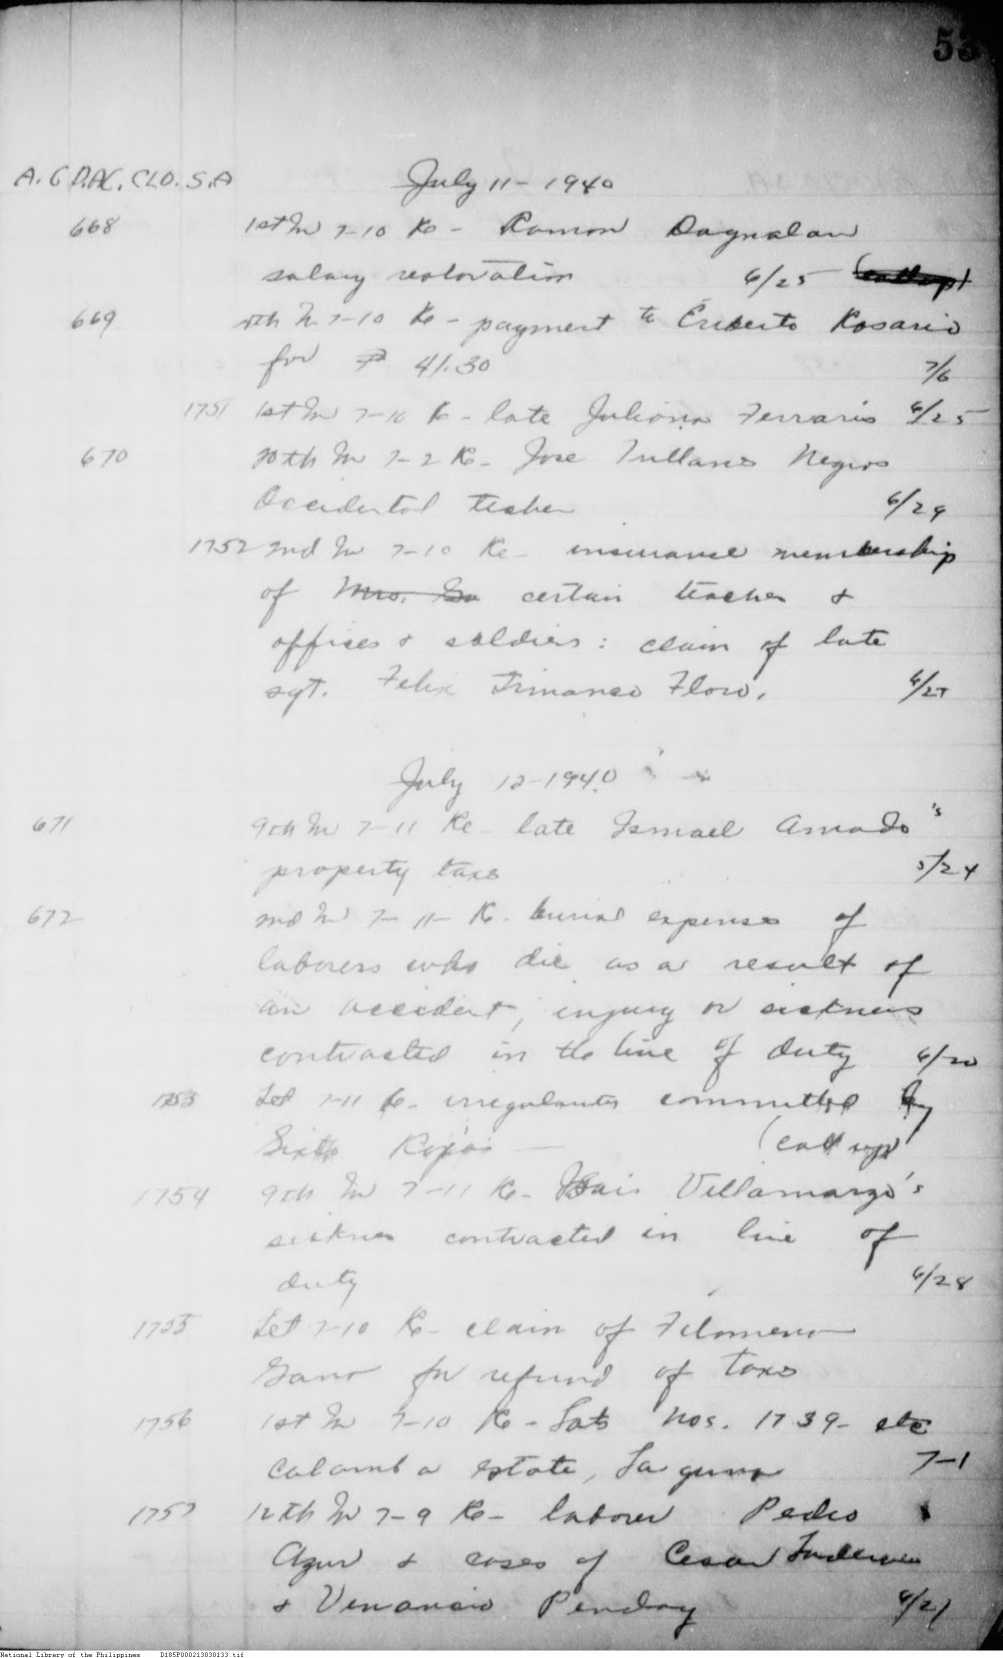 53
A.G D.AC. CLO. S.A
July 11-1940
668 1st In 7-10 Re- Ramon Dagnalan
salary restoration 6/25
669 4th In 7-10 Re- payment to Eriberto Rosario
for ₱ 41.30 7/6
1751 1st In 7-10 Re- late Juliana Ferraris 6/25
670 10th In 7-2 Re- Jose Tullanes Negros
Occidental teacher 6/29
1752 2nd In 7-10 Re- insurance membership
of Mrs. certain teacher &
offices & soldiers: claim of late
sgt. Felix Flores. 6/27
July 12-1940
671 9th In 7-11 Re- late Ismael Amado's
property taxes 5/24
672 2nd In 7-11- Re- burial expenses of
laborers who die as a result of
an accident, injury or sickness
contracted in the line of duty 6/20
1753 Let 7-11 Re- irregularities committed by
Sixto Rojas — (call up)
1754 9th In 7-11 Re- Villamarzo's
sickness contracted in line of
duty 6/28
1755 Let 7-10 Re- claim of Filomeno
Gano for refund of taxes
1756 1st In 7-10 Re- Lots Nos. 1739- etc
Calamba estate, Laguna 7-1
1757 12th In 7-9 Re- laborer Pedro
Azur & cases of Cesar
& Venancio Penday 6/21
National Library of the Philippines D185P000213030133.tif